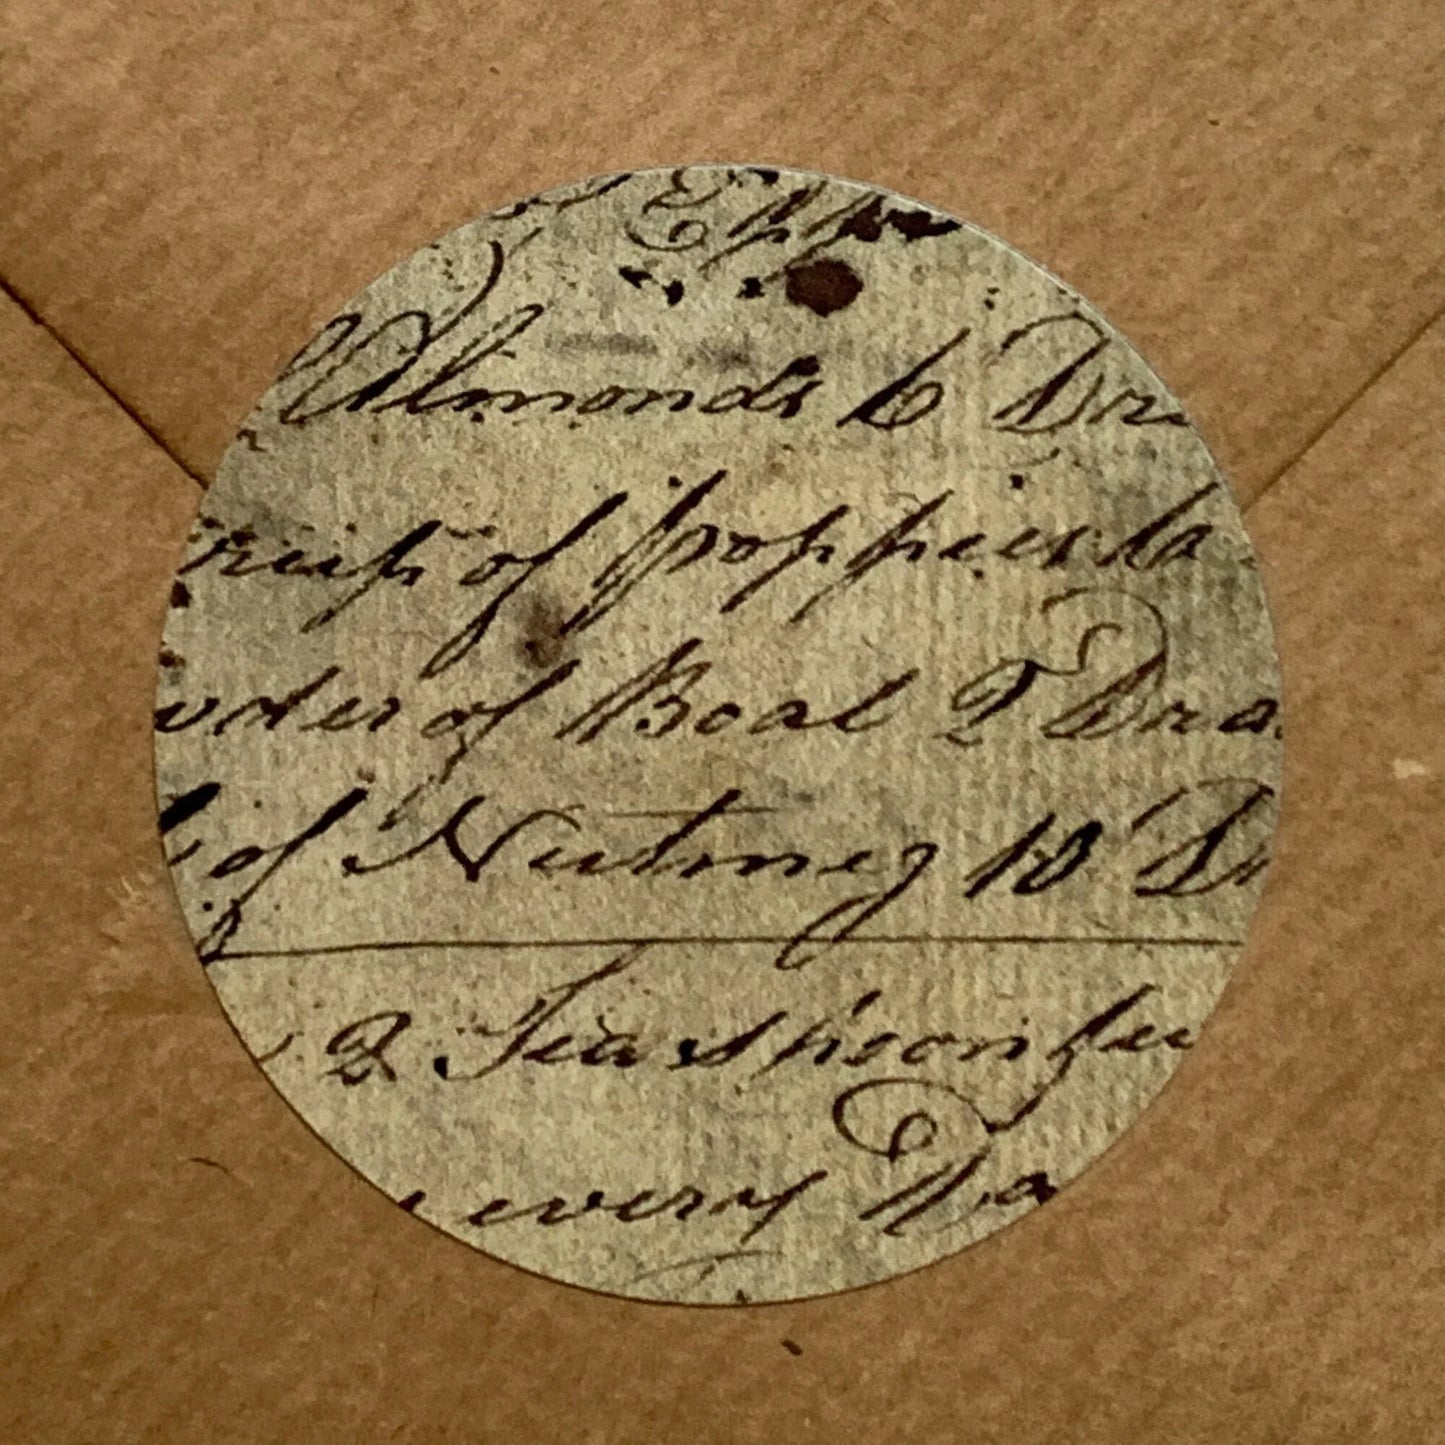 Epp
Almonds 6 Dra
rup of Poppies 6
wder of Boal 2 Dra
of Nutmeg 10 Dr
2 Teaspoonfu
every Da